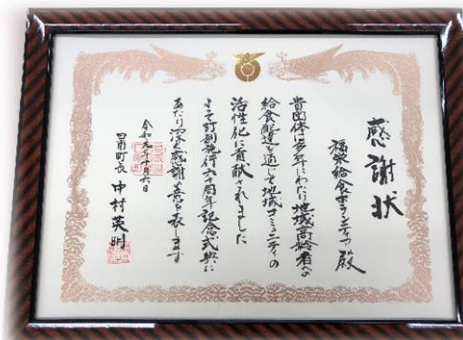 感謝状
福泉給食ボランティア殿
貴団体は多年にわたり地域高齢者への
給食配達を通じて地域コミュニティの
活性化に貢献されました
よって町制施行六十周年記念式典に
あたり深く感謝の意を表します
令和元年十月六日
町長 中村英明